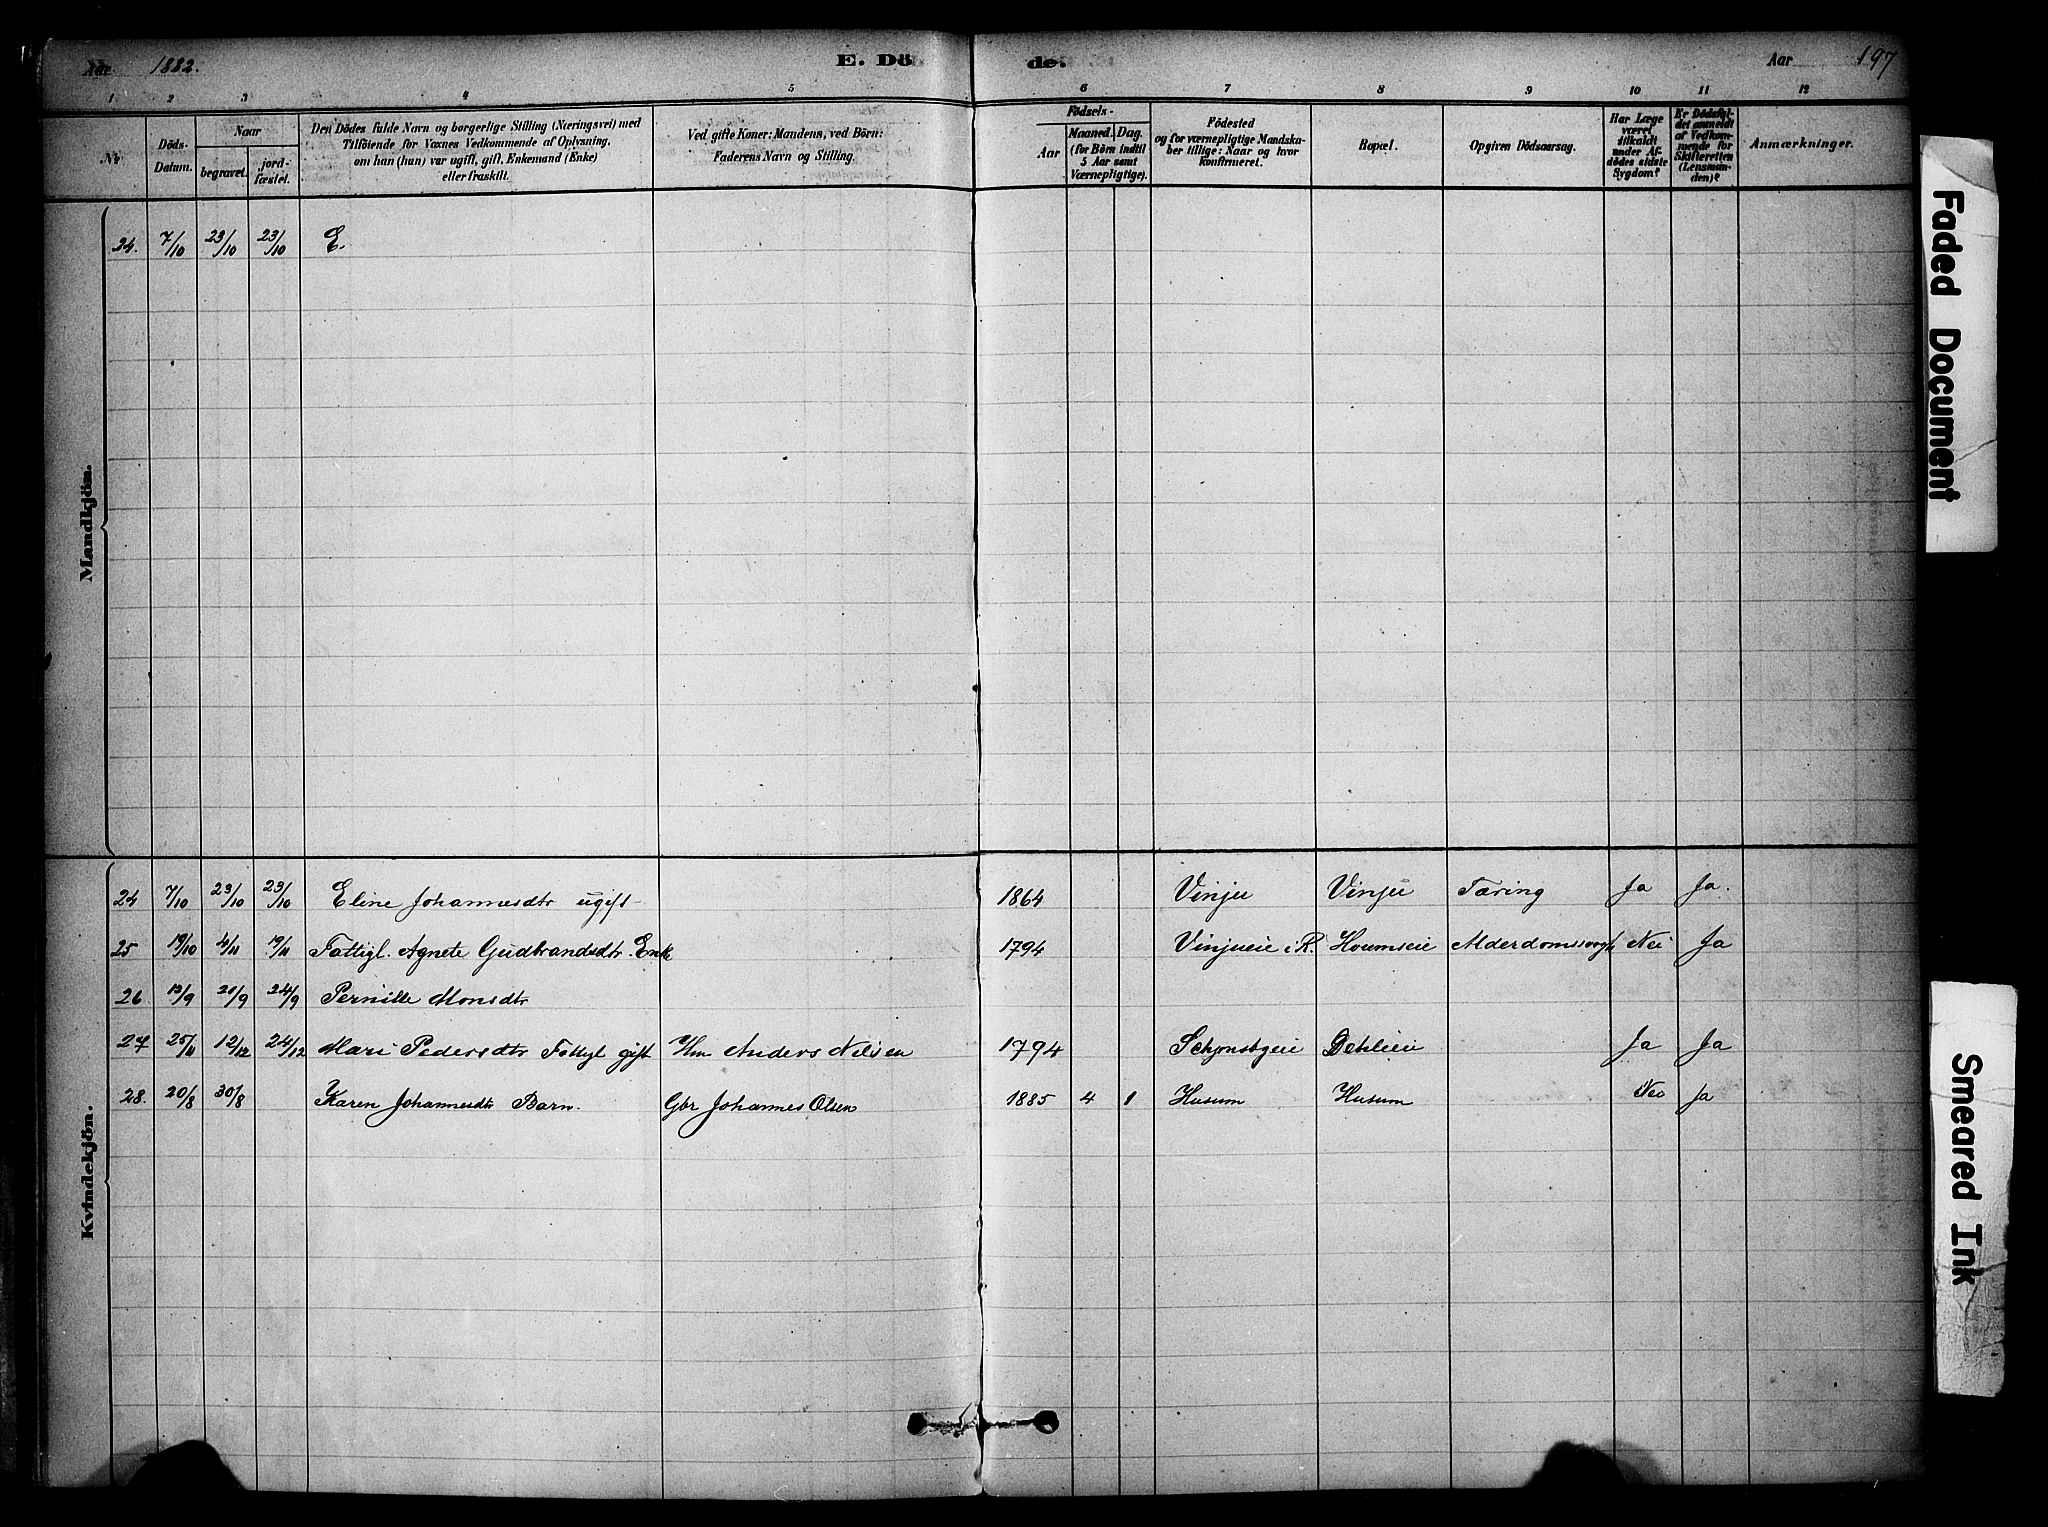 Aar 1882. E. Dö de. Aar 197
1 2 3 4 5 6 7 8 9 10 11 12
Nr.
Döds-Datum.
Naar
begravet.
jordfæstet.
Den Dödes fulde Navn og borgerlige Stilling (Næringsvei) med
Tilföiende for Voxnes Vedkommende af Oplysning,
om han (hun) var ugift, gift, Enkemand (Enke)
eller fraskilt.
Ved gifte Koner: Mandens, ved Börn:
Faderens Navn og Stilling.
Födsels-
Aar
Maaned. Dag.
(for Börn indtil
5 Aar samt
Værnepligtige).
Födested
og for værnepligtige Mandskaber tillige: Naar og hvor
konfirmeret.
Bopæl.
Opgiven Dödsaarsag.
Har Læge
været
tilkaldt
under Afdödes sidste
Sygdom?
Er Dödsfaldet anmeldt
af Vedkommende for
Skifteretten
(Lensmanden)?
Anmærkninger.
Mandkjön.
24. 7/10 23/10 23/10 E.
Kvindekjön.
24 7/10 23/10 23/10 Eline Johannesdtr ugift 1864 Vinju Vinju Tæring Ja Ja.
25 19/10 4/11 19/11 Fattigl. Agnete Gudbrandsdtr. Enke 1794 Vinjueie i R. Houmseie Alderdomssvagh Nei Ja
26 13/9 21/9 24/9 Pernille Monsdtr
27 25/11 12/12 24/12 Mari Pedersdtr Fattigl gift Anders Nilsen 1794 Ja Ja
28. 20/8 30/8 Karen Johannesdtr Barn. Gbr Johannes Olsen 1885 4 8 Husum Husum Nei Ja
Faded Document
Smeared Ink